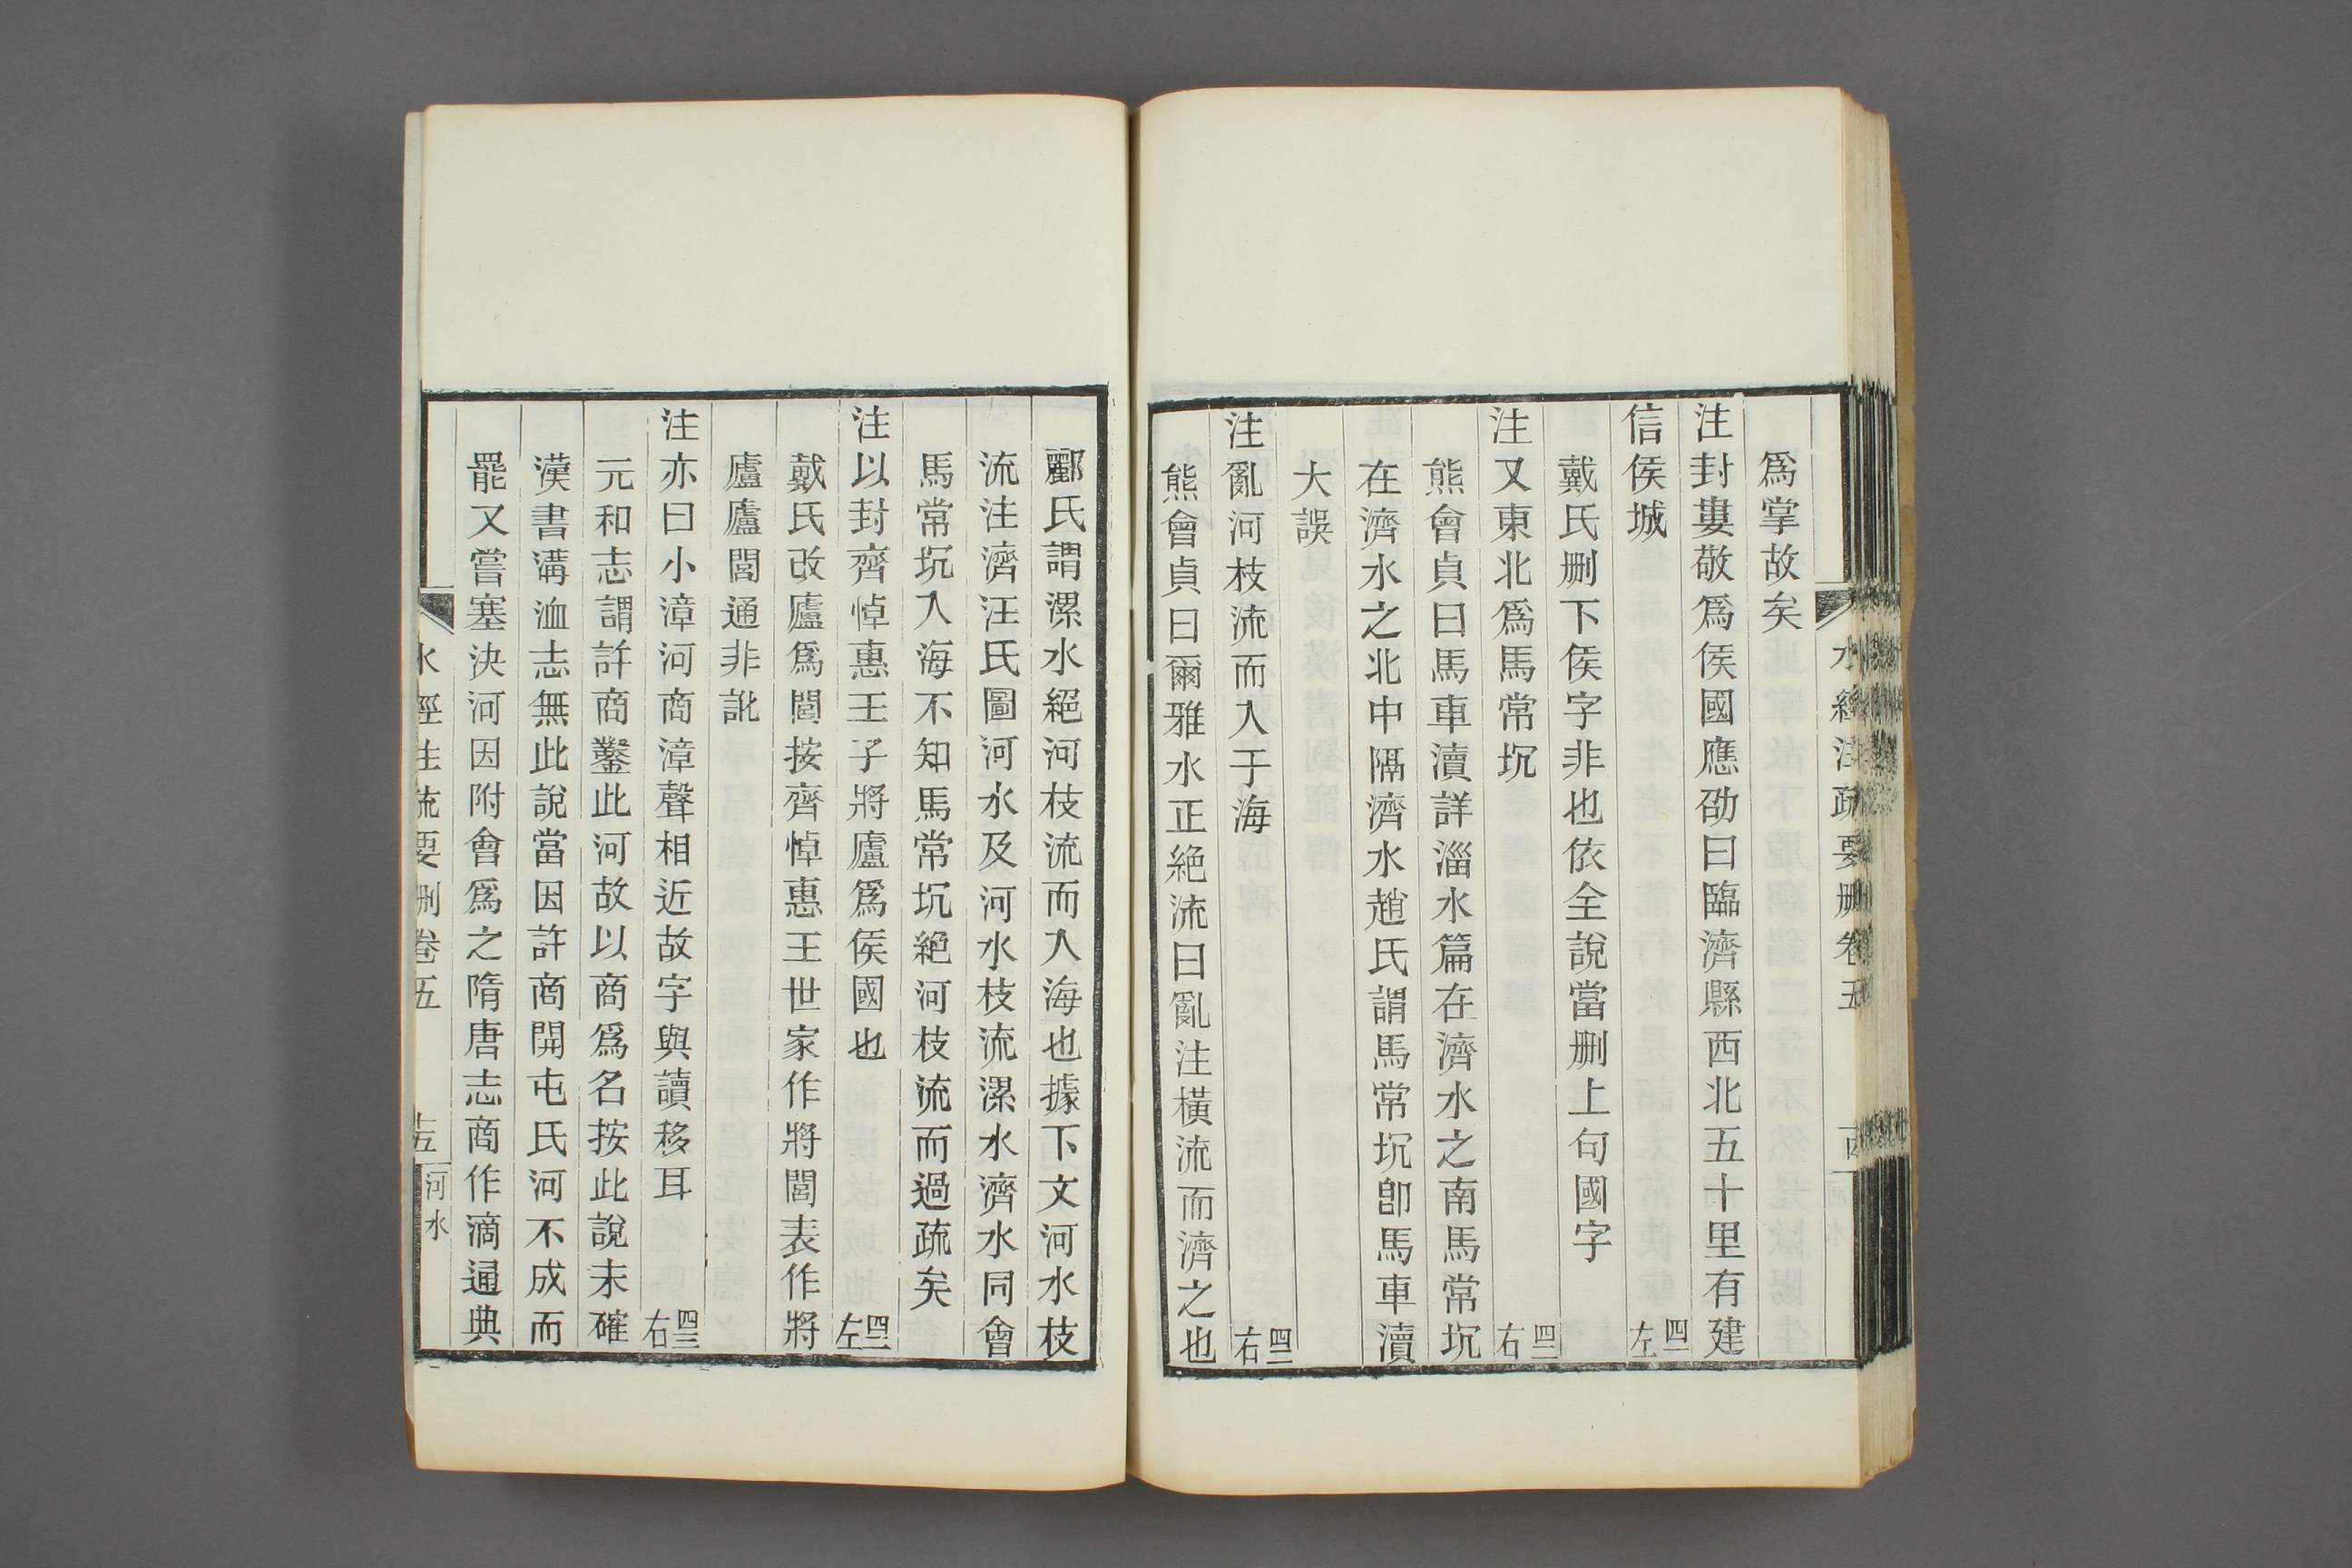 水經注疏要刪卷五
河水
爲掌故矣
注封婁敬爲侯國應劭曰臨濟縣西北五十里有建
信侯城 四一左
戴氏刪下侯字非也依全說當刪上句國字
注又東北爲馬常坈 四二右
熊會貞曰馬車瀆詳淄水篇在濟水之南馬常坈
在濟水之北中隔濟水趙氏謂馬常坈卽馬車瀆
大誤
注亂河枝流而入于海 四二右
熊會貞曰爾雅水正絕流曰亂注橫流而濟之也
酈氏謂漯水絕河枝流而入海也據下文河水枝
流注濟汪氏圖河水及河水枝流漯水濟水同會
馬常坈入海不知馬常坈絕河枝流而過疏矣
注以封齊悼惠王子將廬爲侯國也 四二左
戴氏改廬爲閭按齊悼惠王世家作將閭表作將
廬廬閭通非訛
注亦曰小漳河商漳聲相近故字與讀移耳 四三右
元和志謂許商鑿此河故以商爲名按此說未確
漢書溝洫志無此說當因許商開屯氏河不成而
罷又嘗塞決河因附會爲之隋唐志商作滴通典
水經注疏要刪卷五 十五 河水